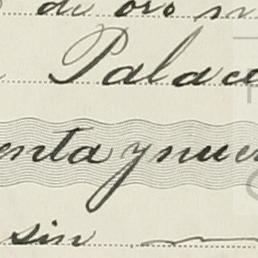 de oro n
Palac
enta ynue
sin